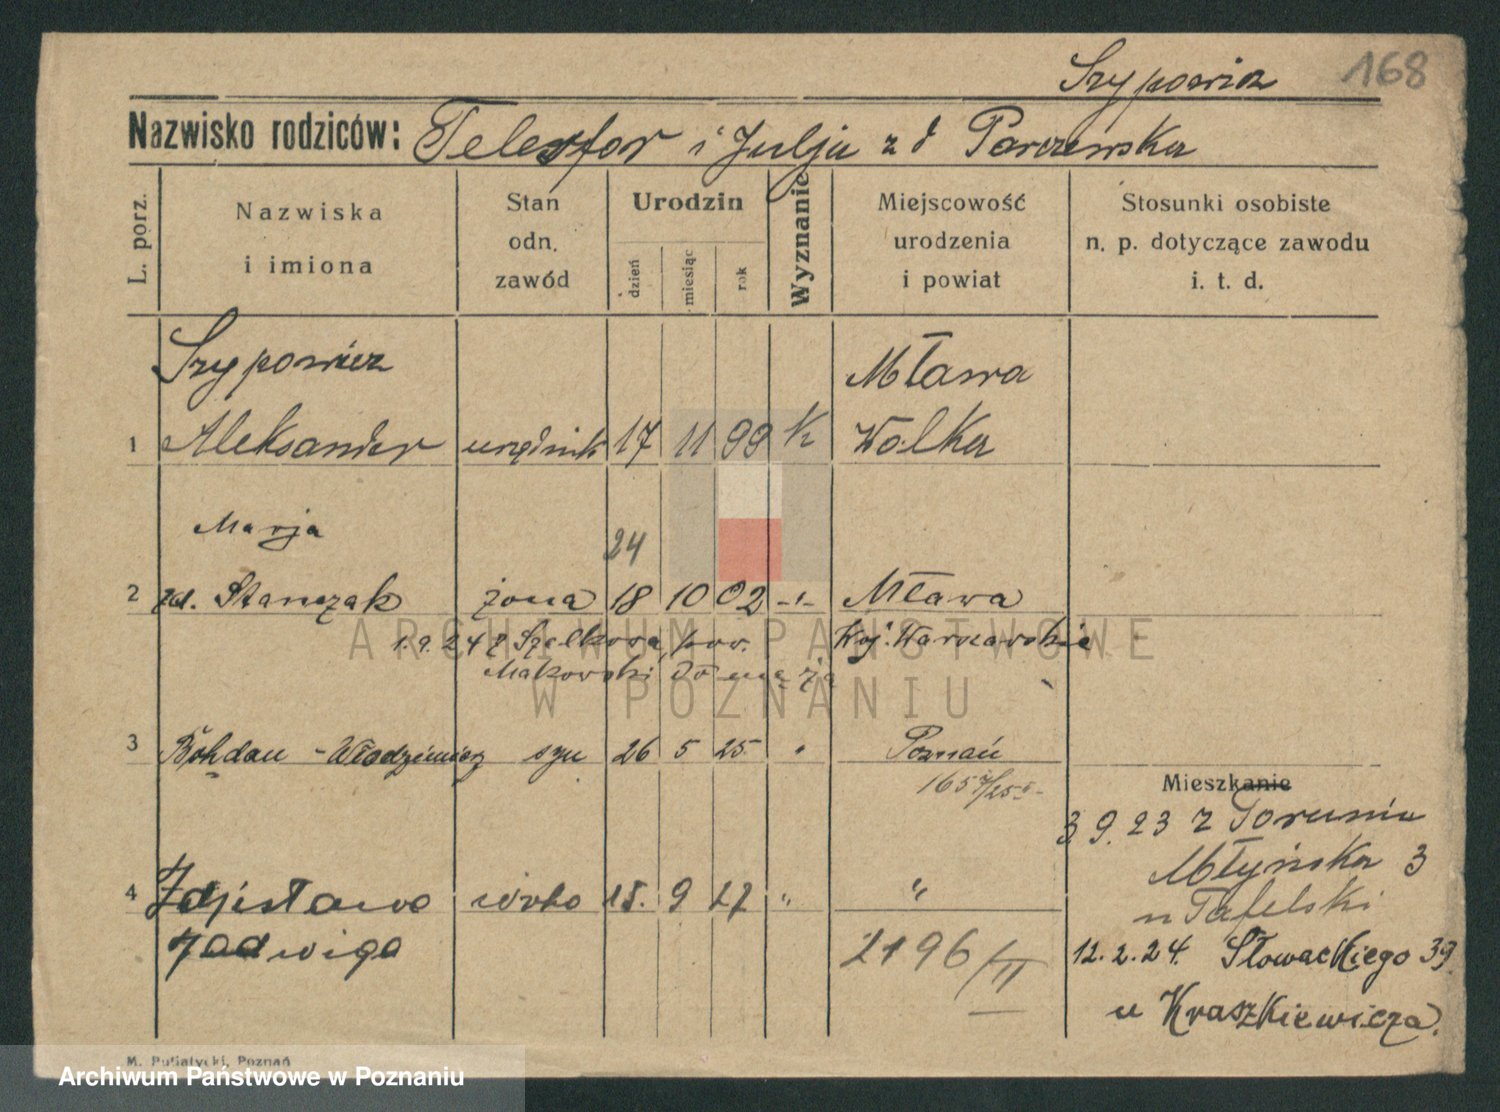 Szypowicz 168
Nazwisko rodziców: Telesfor i Julja z d Parczewska
L. porz.
Nazwiska
i imiona
Stan
odn.
zawód
Urodzin
dzień
miesiąc
rok
Wyznanie
Miejscowość
urodzenia
i powiat
Stosunki osobiste
n. p. dotyczące zawodu
i. t. d.
Szypowicz Mława
1 Aleksander urzędnik 17 11 99 K Wólka
Marja 24
2 zd. Stanczak żona 18 10 02 -"- Mława
1.9.24 z Szelkowa, pow. Woj. Warszawskie
Makowski do męża
3 Bohdan - Włodzimierz syn 26 5 25 " Poznań
Mieszkanie
3 9. 23 z Torunia
Młyńska 3
u Tafelski
4 Zdzisława 15. 9 27 " "
Jadwiga 2196/II
12. 2. 24. Słowackiego 39
u Kraszkiewicza.
M. Putiatycki, Poznań
ARCHIWUM PAŃSTWOWE
W POZNANIU
Archiwum Państwowe w Poznaniu